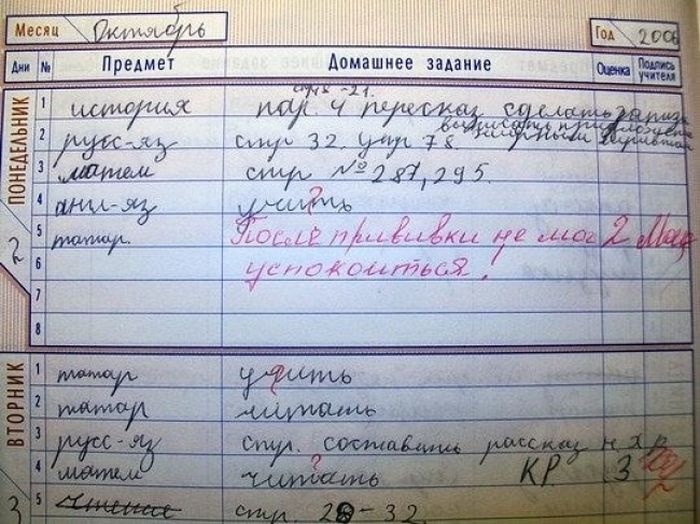 Месяц Октябрь Год 2006
Дни № Предмет Домашнее задание Оценка Подпись учителя
ПОНЕДЕЛЬНИК
2
стр 18-21.
1 история пар. 4 пересказ сделать
2 русс-яз стр 32. упр 78 выписать
3 матем стр №287, 295.
4 анг-яз учить ?
5 татар. После прививки не мог 2
6 успокоиться!
7
8
ВТОРНИК
3
1 татар учить
2 татар читать
3 русс-яз стр. составить рассказ
4 матем читать ? КР 3
5 чтение стр. 28-32.